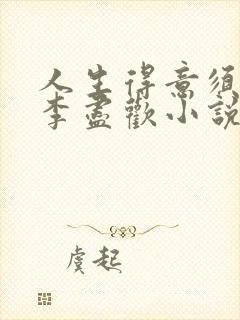 人生得意須
李盡歡小說
虞起